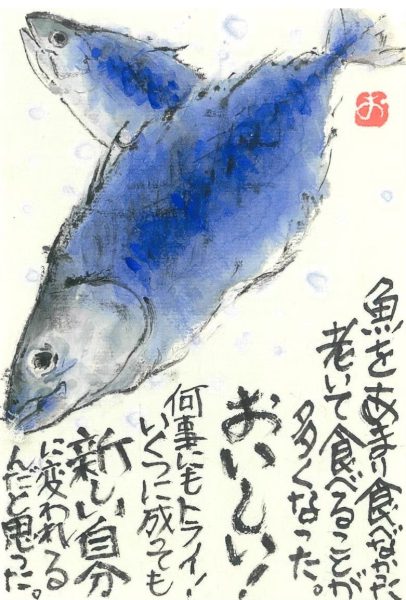 魚をあまり食べなかった、
老いて食べることが
多くなった。
おいしい!
何事にもトライ!
いくつに成っても
新しい自分
に変われる
んだと思った。
お